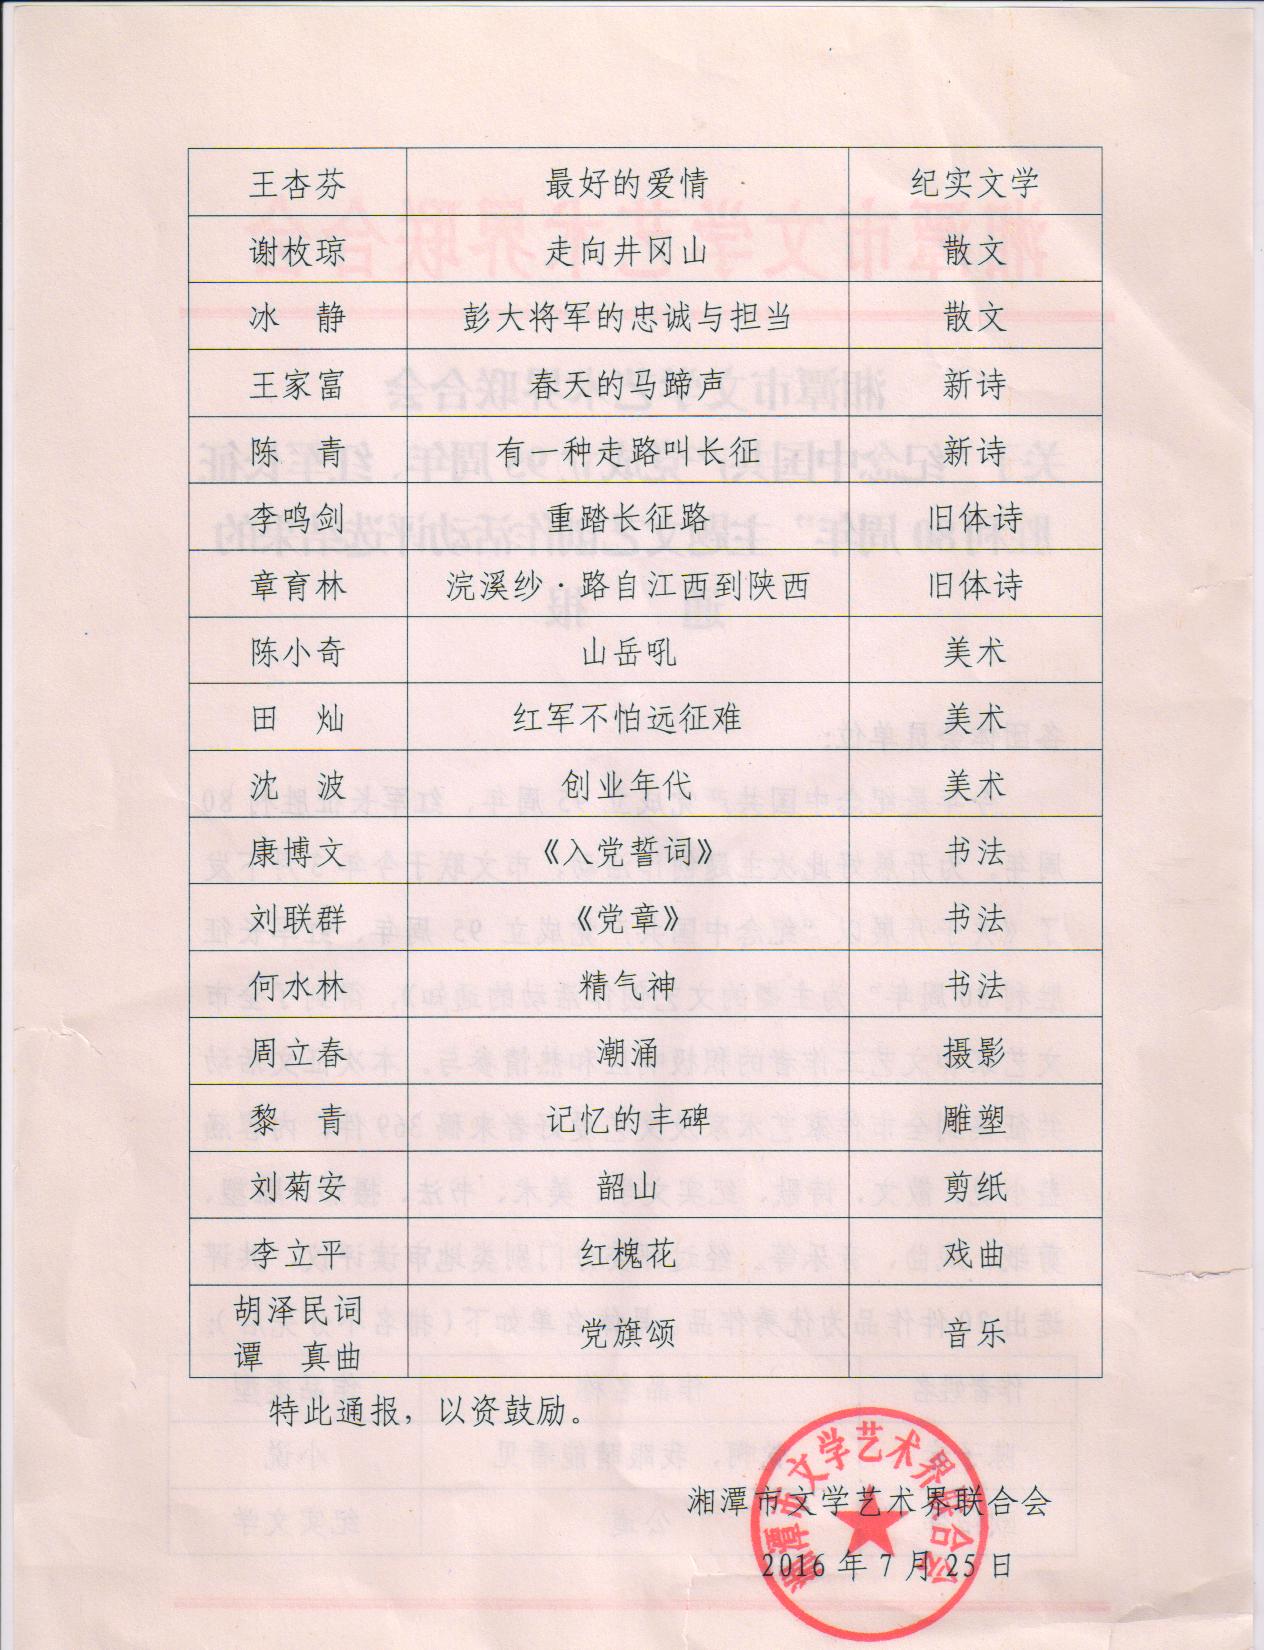 王杏芬 最好的爱情 纪实文学
谢枚琼 走向井冈山 散文
冰 静 彭大将军的忠诚与担当 散文
王家富 春天的马蹄声 新诗
陈 青 有一种走路叫长征 新诗
李鸣剑 重踏长征路 旧体诗
章育林 浣溪纱·路自江西到陕西 旧体诗
陈小奇 山岳吼 美术
田 灿 红军不怕远征难 美术
沈 波 创业年代 美术
康博文 《入党誓词》 书法
刘联群 《党章》 书法
何水林 精气神 书法
周立春 潮涌 摄影
黎 青 记忆的丰碑 雕塑
刘菊安 韶山 剪纸
李立平 红槐花 戏曲
胡泽民词
谭 真曲 党旗颂 音乐
特此通报，以资鼓励。
湘潭市文学艺术界联合会
2016年7月25日
湘潭市文学艺术界联合会